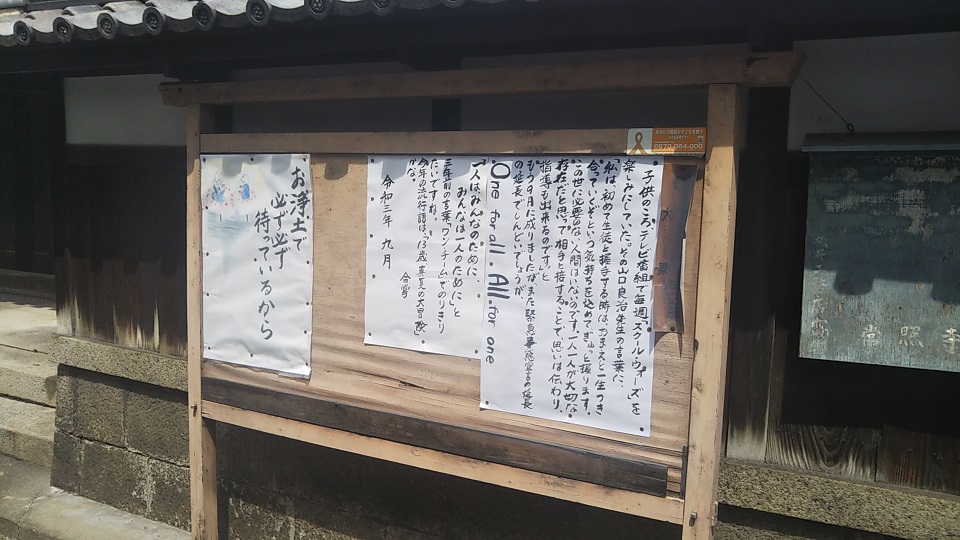 子供のころ、テレビ番組で毎週、「スクール・ウォーズ」を
楽しみにしていた。その山口良治先生の言葉に、
「私は、初めて生徒と握手する時は、おまえと一生つき
合っていくぞという気持ちを込めてぎゅっと握ります。
この世に必要のない人間はいないのです。一人一人が大切な
存在だと思って相手と接することで、思いは伝わり、
指導も出来るのです。」と
もう9月に成りましたがまた緊急事態宣言の延長
の延長でしんどいでしょうが
One for all, All for one
「一人はみんなのために、
みんなは一人のために」と
三年前の言葉、「ワンチーム」でのりきり
たいですね。
今年の流行語は、「13歳、真夏の大冒険」
かな。
合掌
令和三年 九月
お浄土で
必ず必ず
待っているから
0570-064-000
常照寺